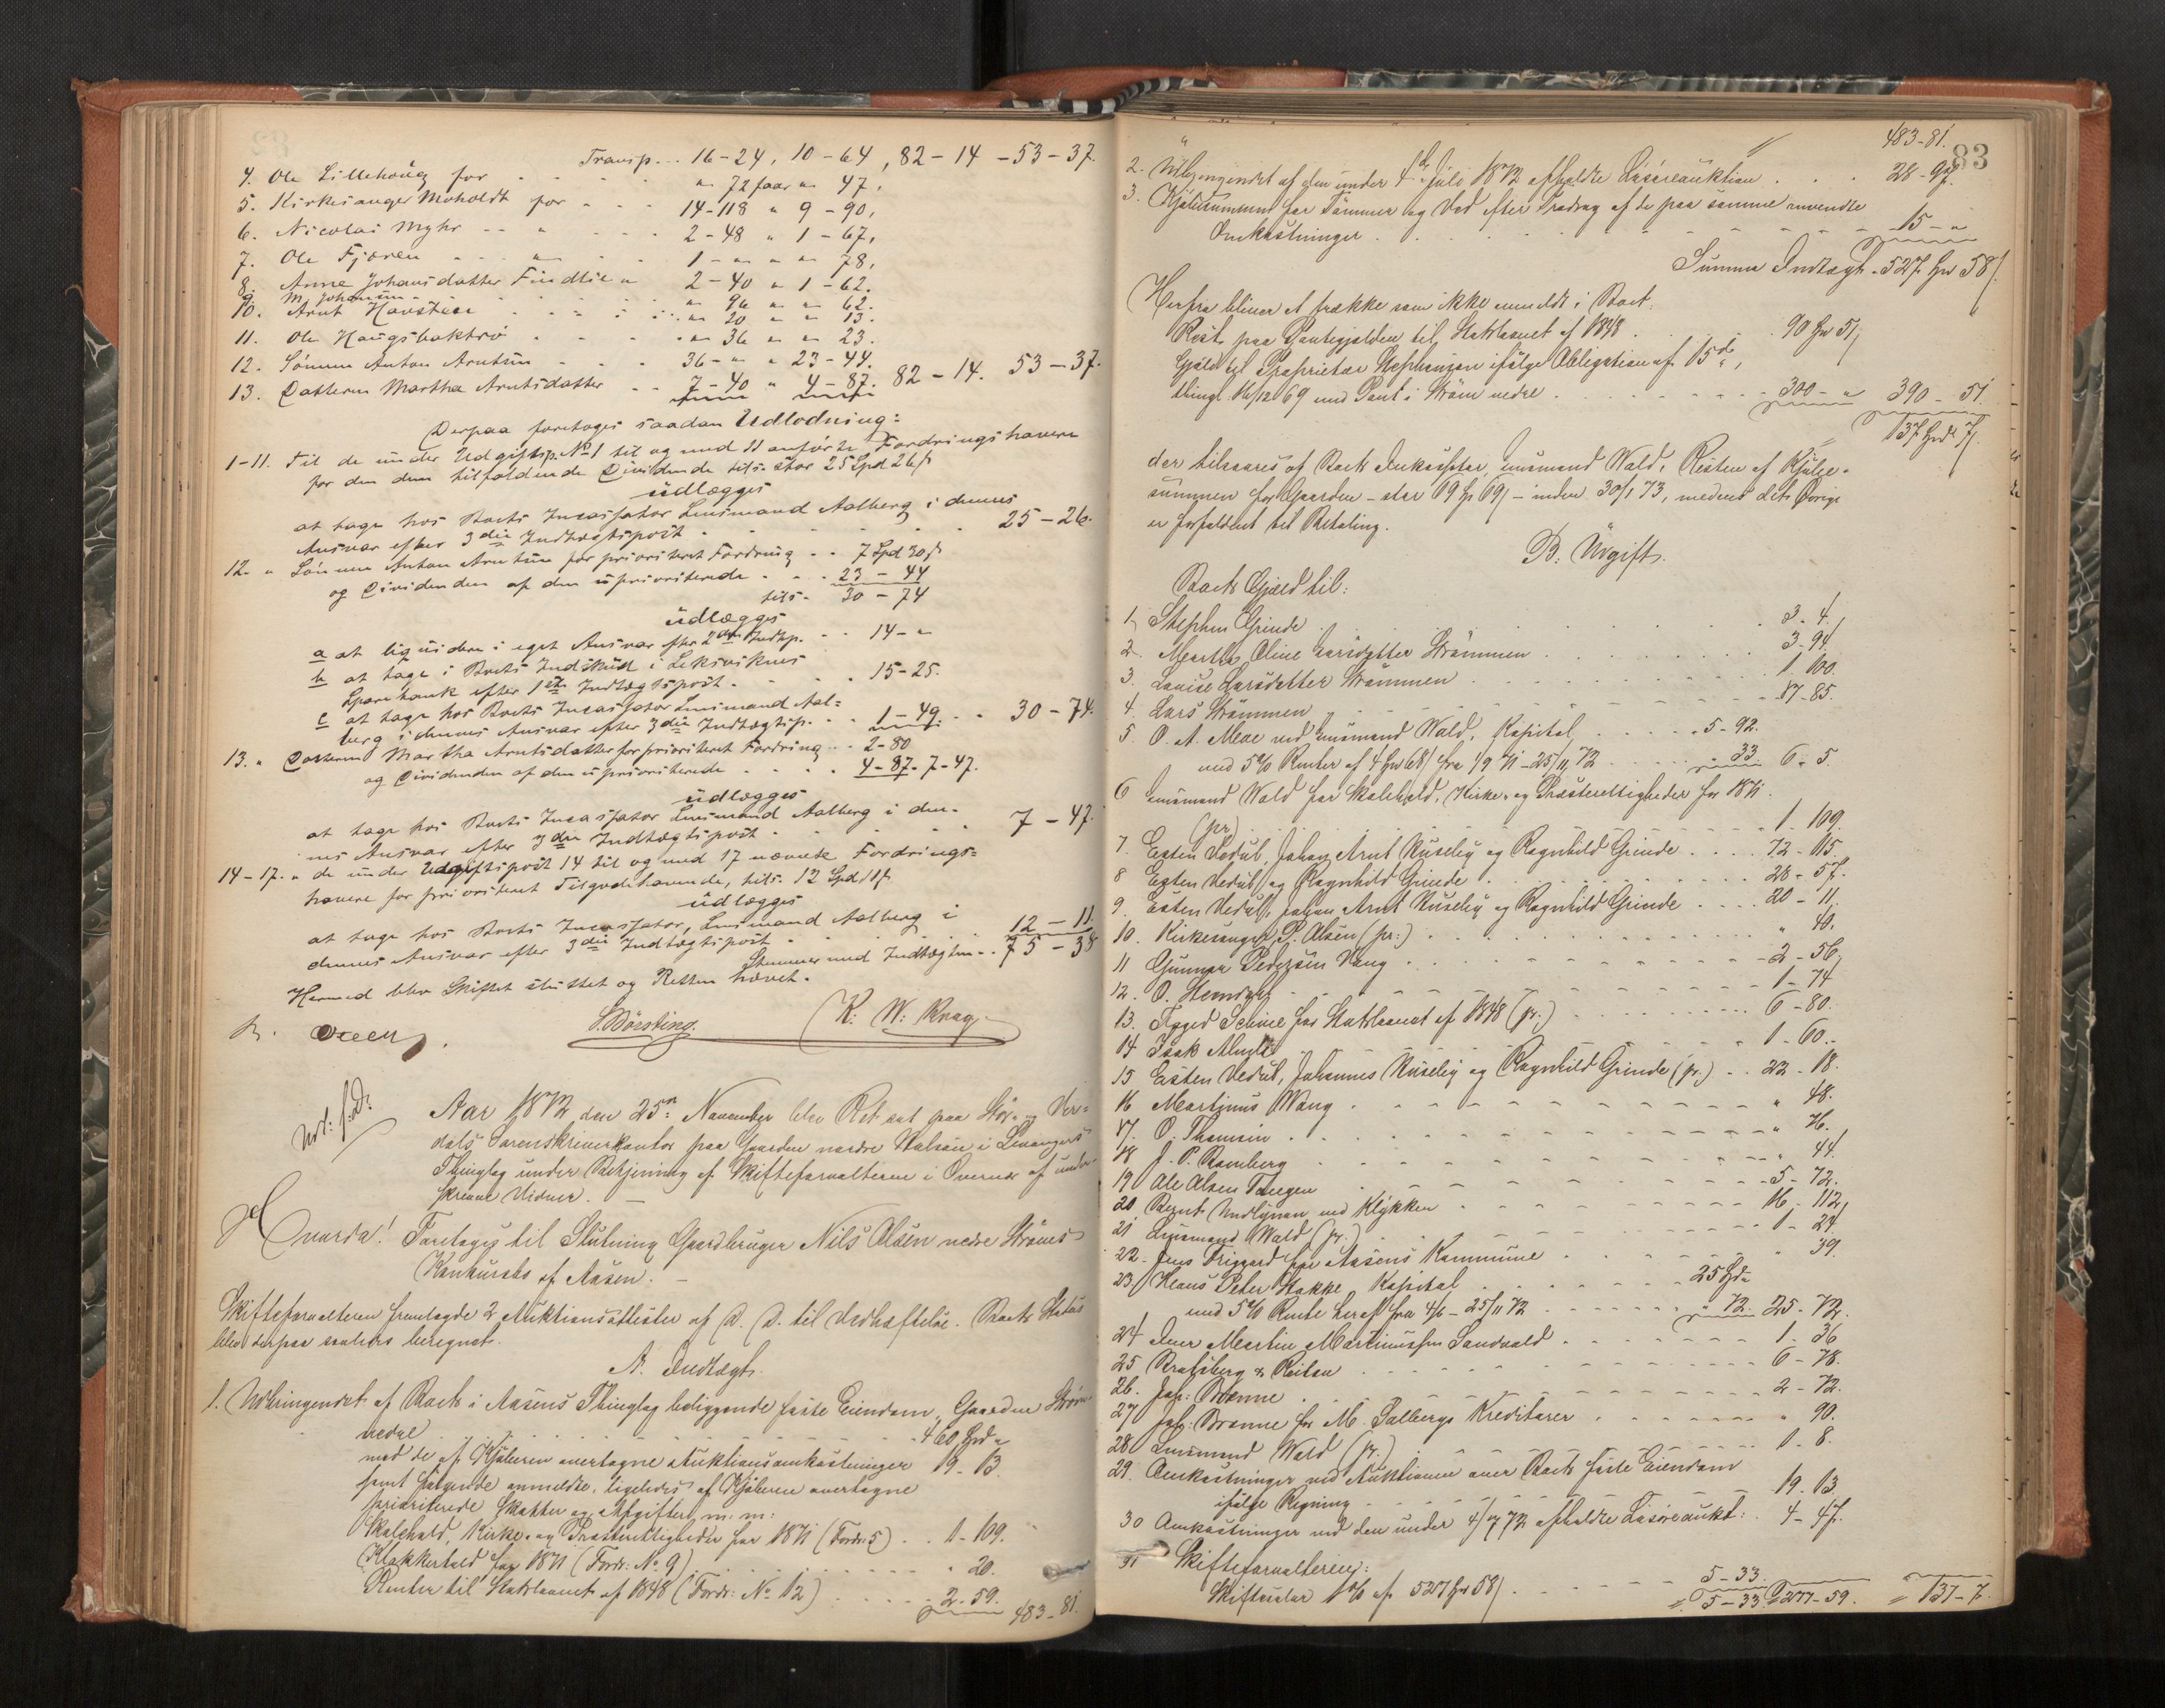 Transp... 16-24, 10-64, 82-14 - 53-37.
4. Ole Lillehoug for . . . . " 72 faar " 47,
5. Kirkesanger Moholdt for . . . 14-118 " 9-90,
6. Nicolai Myhr -- " . . . 2-48 " 1-67,
7. Ole Fjæren . . " . . . 1 - " " " 78,
8. Anne Johansdatter Findlie " 2-40 " 1-62.
9. M. Johansen . . " 96 " " 62.
10. Arnt Hovstein . . . " 20 " " 13.
11. Ole Haugsbaktrø . . . " 36 " " 23.
12. Sønnen Anton Arntsen . . . 36 - " " 23-44.
13. Datteren Martha Arntsdatter . . 7-40 " 4-87. 82-14. 53-37.
Derpaa foretoges saadan Udlodning:
1-11. Til de under Udgiftsp. No 1 til og med 11 anførte Fordringshavere
for den dem tilfaldende Dividende tils. stor 25 Spd 26 s
udlægges
at tage hos Boets Incassator Lensmand Aalberg i dennes
Ansvar efter 3die Indtægtspost . . . . 25-26.
12. " Sønnen Anton Arntsen for prioriteret Fordring . . 7 Spd 30 s
og Dividenden af den uprioriterede . . . 23-44
tils. 30-74
udlægges
a at liqvidere i eget Ansvar efter 2den Indtp. . . 14 - "
b at tage i Boets Indskud i Leksvikens
Sparebank efter 1ste Indtægtspost . . . 15-25.
c at tage hos Boets Incassator Lensmand Aal=
berg i dennes Ansvar efter 3die Indtægtsp. . . 1-49. . . 30-74.
13. " Datteren Martha Arntsdatter for prioriteret Fordring . . 2-80
og Dividenden af den uprioriterede . . . . 4-87. 7-47.
udlægges
at tage hos Boets Incassator Lensmand Aalberg i den-
nes Ansvar efter 3die Indtægtspost . . . . 7-47.
14-17. " de under Udgiftspost 14 til og med 17 nævnte Fordrings=
havere for prioriteret Tilgodehavende, tils. 12 Spd 11 s
udlægges
at tage hos Boets Incassator, Lensmand Aalberg i
dennes Ansvar efter 3die Indtægtspost . . . 12-11.
Stemmer med Indtægten . . 75-38
Hermed blev Skiftet sluttet og Retten hævet.
S. Børsting. K. W. Krag.
Aar 1872 den 25de November blev Ret sat paa Stør- og Vær=
dals Sorenskriverkontor paa Gaarden nordre Halsan i Levangers
Thinglag under Betjening af Skifteforvalteren i Overvær af under
skrevne Vidner. -
Hvorda! Foretoges til Slutning Gaardbruger Nils Olsen nedre Strøms
Konkursbo af Aasen. -
Skifteforvalteren fremlagde 2 Auktionsattester af D. D. til Vedhæftelse. Boets Status
blev derpaa saaledes beregnet.
A. Indtægt.
1. Udbringendet af Boets i Aasens Thinglag beliggende faste Eiendom, Gaarden Strøm
nedre . . . . . 460 Spd "
med de af Kjøberen overtagne Auktionsomkostninger 19-13.
samt følgende anmeldte, ligeledes af Kjøberen overtagne
prioriterede Skatter og Afgifter m: m:
Skolehold, Kirke- og Præsterettigheder for 1871 (Fordr: 5) . . 1-109.
Klokkertold for 1871 (Fordr: No 9) . . . . " 20.
Renter til Statslaanet af 1848 (Fordr: No 12) . . . 2-59. 483-81.
83
" 483-81.
2. Udbringendet af den under 4de Juli 1872 afholdte Løsøreauktion . . . 28-97.
3. Kjøbesummen for Tømmer og Ved efter Fradrag af de paa samme anvendte
Omkostninger . . . . . 15 - "
Summa Indtægt - 527 Spd 58 s
Herfra bliver at trække som ikke anmeldt i Boet.
Rest paa Pantegjælden til Statslaanet af 1848 . . . 90 Spd 51 s
Gjæld til Proprietær Stephansen ifølge Obligation af 15de,
thingl. 16/12 69 med Pant i Strøm nedre . . . . 300 - " 390-51.
137 Spd 7 s
der tilsvares af Boets Inkassator, Lensmand Wold, Resten af Kjøbe-
summen for Gaarden - stor 69 Sp 69 s - inden 30/1 73, medens det Øvrige
er forfaldent til Betaling.
B. Udgift.
Boets Gjæld til:
1, Stephen Grinde . . . . 3-4.
2. Martha Oline Larsdatter Strømmen . . . 3-94.
3. Louise Larsdatter Strømmen . . . 1-100.
4. Lars Strømmen . . . . 17-85.
5. O. A. Moe ved Lensmand Wold, Kapital . . . 5-92.
med 5% Renter af 4 Spd 68 s fra 1/9 71 - 25/11 72 . . " 33. 6-5.
6 Lensmand Wold for Skolehold, Kirke- og Præsterettigheder for 1871.
(pr.) . . . . 1-109.
7. Esten Vedul, Johan Arnt Husely og Ragnhild Grinde . . . 72-115
8 Esten Vedul og Ragnhild Grinde . . . 28-57.
9. Esten Vedul, Johan Arnt Husely og Ragnhild Grinde . . . 20-11.
10. Kirkesanger P. Olsen (pr:) . . . " 40.
11 Gunnar Pedersen Vang . . . 2-56,
12. O. . . . 1-74
13. Foged Schive for Statslaanet af 1848 (pr:) . . . 6-80.
14 Isak . . . 1-60.
15 Esten Vedul, Johannes Husely og Ragnhild Grinde (pr.) . . 22-18.
16 Martinus Wang . . . " 48.
17. O. Thomsen . . . " 76.
18 J. P. Ramberg . . . " 44.
19 Ole Olsen Tangen . . . 5-72.
20 Bernt ved Kløkken . . . 16-112,
21 Lensmand Wold (pr.) . . . 1-24
22. Jens Friggard for Aasens Kommune . . . " 39.
23 Klaus Peter Hakke Kapital . . . 25 Spd "
med 5% Rente heraf fra 4/5 - 25/11 72 . . . " 72. 25-72.
24 Iver Martin Martinussen Sandvold . . . 1-36
25 Bratsberg & Reitan . . . 6-78.
26. Joh: Brønne . . . 2-72.
27 Joh: Brønne for M. Salbergs Kreditorer . . . " 90.
28 Lensmand Wold (pr.) . . . 1-8.
29. Omkostninger ved Auktionen over Boets faste Eiendom
ifølge Regning . . . 19-13.
30 Omkostninger ved den under 4/7 72 afholdte Løsøreaukt: . 4-47.
31 Skifteforvalteren:
Skiftesalær 1% af 527 Spd 58 s . . . 5-33.
" 5-33. 277-59. " 137-7.